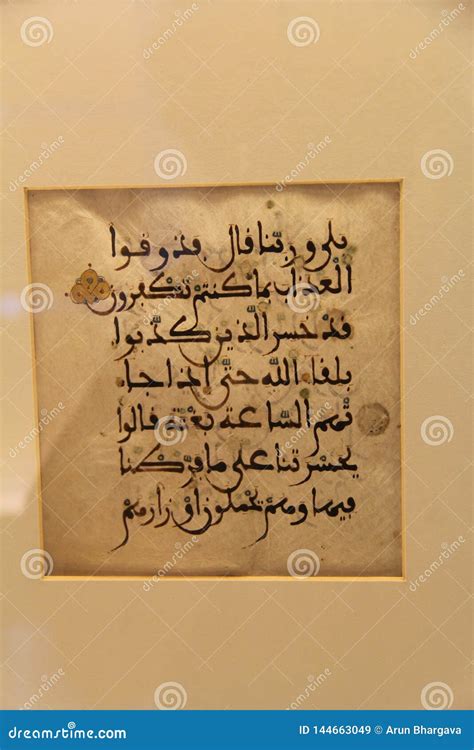 بلى وربنا قال فذوقوا
العذاب بما كنتم تكفرون
قد خسر الذين كذبوا
بلقا الله حتى اذا جا
تهم الساعة بغتة قالوا
يحسرتنا على ما فرطنا
فيها وهم يحملون اوزارهم
dreamstime
dreamstime.com
ID 144663049 © Arun Bhargava